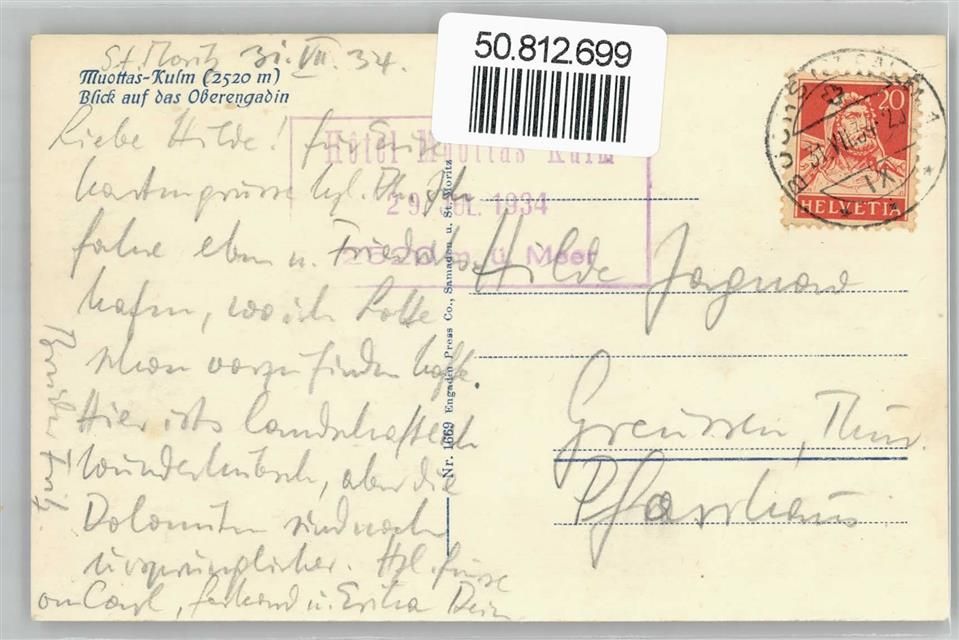 50.812.699
St. Moritz 31. VII. 34.
Muottas-Kulm (2520 m)
Blick auf das Oberengadin
Liebe Hilde! für Eure
kartengrüsse hgl. Ich
fahre eben n. Friedrichs-
hafen, wo ich Lotte
schon vorzufinden hoffe
Hier ists landschaftlich
wunderhübsch, aber die
Dolomiten sind noch
ursprünglicher. Hzl. Grüsse
an Carl, Gerhard u. Erika Dein
Bruder
Hôtel Muottas Kulm
29. JUL. 1934
2520 m. ü. Meer
Nr. 1669 Engadin Press Co., Samaden u. St. Moritz
20
HELVETIA
31.VII.34
IX
Hilde Jagnow
Greussen, Thür.
Pfarrhaus